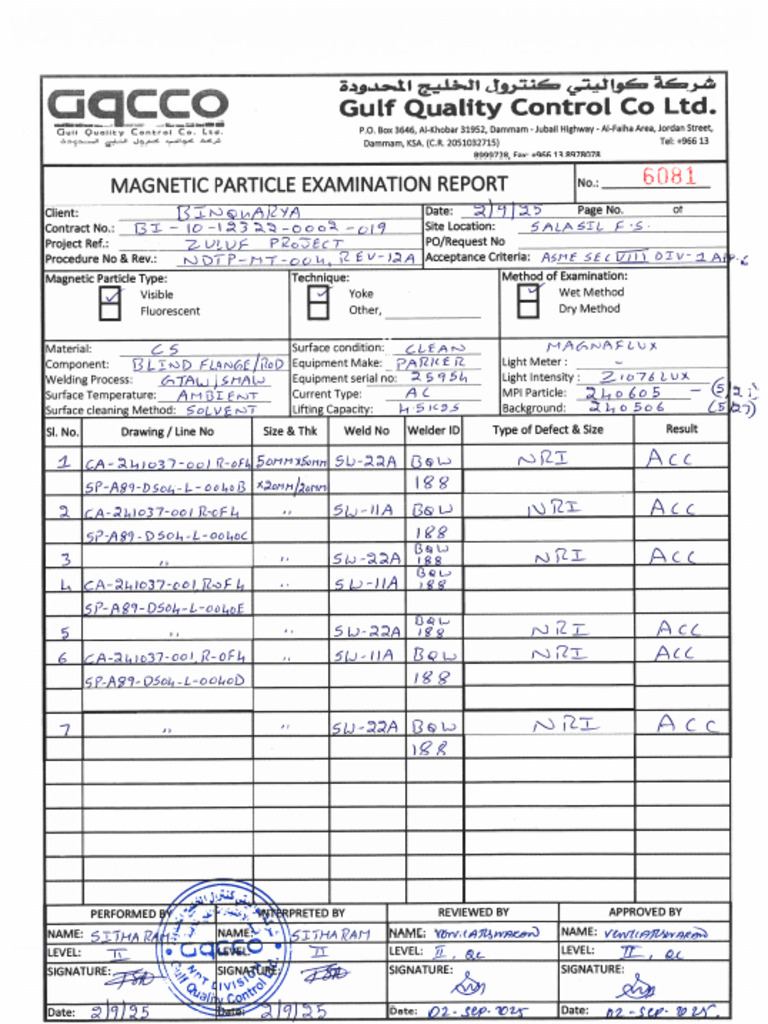 GQCCO
Gulf Quality Control Co. Ltd.
شركة كواليتي كنترول الخليج المحدودة
Gulf Quality Control Co Ltd.
P.O. Box 3646, Al-Khobar 31952, Dammam - Jubail Highway - Al-Faiha Area, Jordan Street,
Dammam, KSA. (C.R. 2051032715) Tel: +966 13
8999728, Fax: +966 13 8978078
MAGNETIC PARTICLE EXAMINATION REPORT No.: 6081
Client: BINQUARYA Date: 2/9/25 Page No. of
Contract No.: BI-10-12322-0002-019 Site Location: SALASIL F.S.
Project Ref.: ZULUF PROJECT PO/Request No
Procedure No & Rev.: NDTP-MT-004, REV-12A Acceptance Criteria: ASME SEC VIII DIV-1 APP.6
Magnetic Particle Type: Technique: Method of Examination:
✓ Visible ✓ Yoke ✓ Wet Method
Fluorescent Other, Dry Method
Material: CS Surface condition: CLEAN MAGNAFLUX
Component: BLIND FLANGE/ROD Equipment Make: PARKER Light Meter : -
Welding Process: GTAW/SMAW Equipment serial no: 25954 Light Intensity : 21076 LUX
Surface Temperature: AMBIENT Current Type: AC MPI Particle: 240605 - (5/27)
Surface cleaning Method: SOLVENT Lifting Capacity: 4.5KGS Background: 240506 (5/27)
Sl. No. Drawing / Line No Size & Thk Weld No Welder ID Type of Defect & Size Result
1 CA-241037-001 R-0F4 50MMX50MM SW-22A BQW NRI ACC
SP-A89-DS04-L-0040B X20MM/20MM 188
2 CA-241037-001 R-0F4 " SW-11A BQW NRI ACC
SP-A89-DS04-L-0040C 188
3 " " SW-22A BQW 188 NRI ACC
4 CA-241037-001, R-0F4 " SW-11A BQW 188
SP-A89-DS04-L-0040E
5 " " SW-22A BQW 188 NRI ACC
6 CA-241037-001, R-0F4 " SW-11A BQW NRI ACC
SP-A89-DS04-L-0040D 188
7 " " SW-22A BQW NRI ACC
188
PERFORMED BY INTERPRETED BY REVIEWED BY APPROVED BY
NAME: SITHARAM NAME: SITHARAM NAME: NAME:
LEVEL: II LEVEL: II LEVEL: II, QC LEVEL: II, QC
SIGNATURE: SIGNATURE: SIGNATURE: SIGNATURE:
Date: 2/9/25 Date: 2/9/25 Date: 02-SEP-2025 Date: 02-SEP-2025.
GQCCO
NDT DIVISION
Gulf Quality Control Co. Ltd.